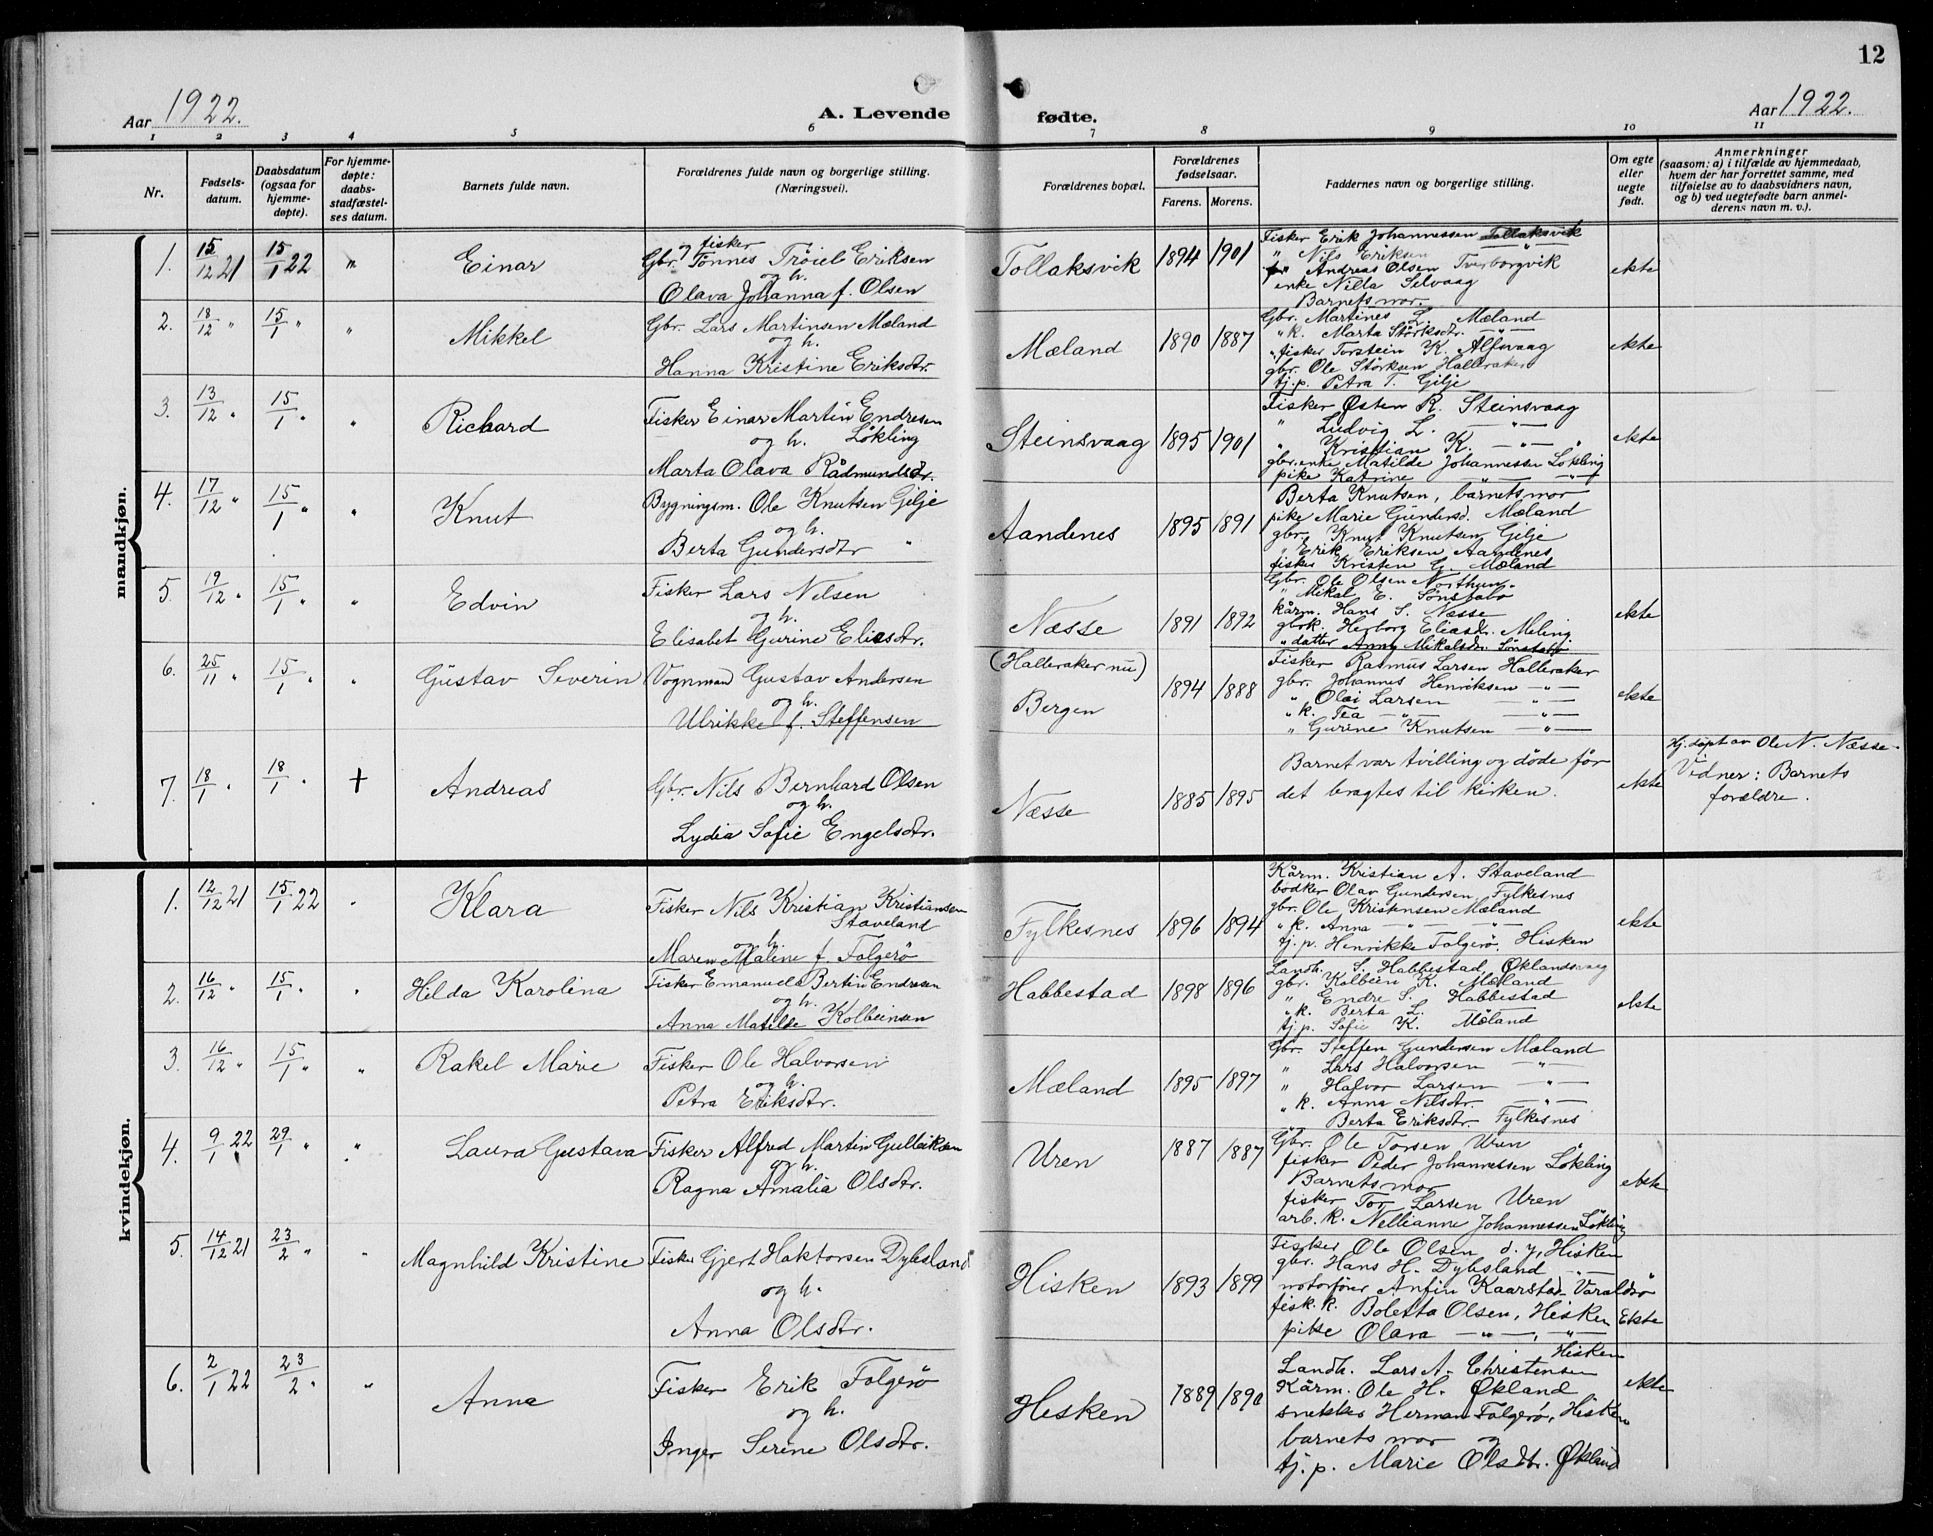 12
Aar 1922.
A. Levende
fødte.
Aar 1922.
1 2 3 4 5 6 7 8 9 10 11
Nr.
Fødsels-
datum.
Daabsdatum
(ogsaa for
hjemme-
døpte).
For hjemme-
døpte:
daabs-
stadfæstel-
ses datum.
Barnets fulde navn.
Forældrenes fulde navn og borgerlige stilling.
(Næringsvei).
Forældrenes bopæl.
Forældrenes
fødselsaar.
Farens.
Morens.
Faddernes navn og borgerlige stilling.
Om egte
eller
uegte
født.
Anmerkninger
(saasom: a) i tilfælde av hjemmedaab,
hvem der har forrettet samme, med
tilføielse av to daabsvidners navn,
og b) ved uegtefødte barn anmel-
derens navn m. v.).
mandkjøn.
1. 15/12 21 15/1 22 " Einar
Gbr. & fisker Tönnes Tröiel Eriksen
og h.
Olava Johanna f. Olsen
Tollaksvik 1894 1901
Fisker Erik Johannessen Tollaksvik
" Nils Eriksen "
" Andreas Olsen Tverborgvik
enke Nilla Selvaag
Barnets mor.
ekte
2. 18/12 " 15/1 " " Mikkel
Gbr. Lars Martinsen Mæland
og h.
Hanna Kristine Eriksdtr.
Mæland 1890 1887
Gbr. Martines L. Mæland
" k. Marta Störksdtr. — " —
" fisker Torstein K. Alfsvaag
gbr. Ole Störksen Halleraker
tj. p. Petra T. Gilje
ekte
3. 13/12 " 15/1 " " Richard
Fisker Einar Martin Endresen
og h. Lökling
Marta Olava Rådmundsdtr.
Steinsvaag 1895 1901
Fisker Østen R. Steinsvaag
" Ludvig L. — " —
" Kristian K. — " —
gbr. enke Matilde Johannessen Lökling
pike Katrine — " —
ekte
4. 17/12 " 15/1 " " Knut
Bygningsm. Ole Knutsen Gilje
og h.
Berta Gundersdtr "
Aandenes 1895 1891
Berta Knutsen, barnets mor
pike Marie Gundersd. Mæland
gbr. Knut Knutsen Gilje
" Erik Eriksen Aandenes
fisker Kristen G. Mæland
5. 19/12 " 15/1 " " Edvin
Fisker Lars Nilsen
og h.
Elisabet Gurine Eliesdtr.
Næsse 1891 1892
Gbr. Ole Olsen Northun.
" Mikal E. Sönstabö
kårm. Hans S. Næsse
gbrk. Herborg Eliasdr. Meling
" datter Anna Mikalsdr. Sönstabö
ekte
6. 25/11 " 15/1 " " Gustav Severin
Vognmand Gustav Andersen
og h.
Ulrikke f. Steffensen
(Halleraker nu)
Bergen 1894 1888
Fisker Rasmus Larsen Halleraker
gbr. Johannes Henriksen — " —
" Olai Larsen — " —
" k. Tea — " — — " —
" Gurine Knutsen — " —
ekte
7. 18/1 " 18/1 " + Andreas
Gbr. Nils Bernhard Olsen
og h.
Lydia Sofie Engelsdtr.
Næsse 1885 1895
Barnet var tvilling og døde før
det bragtes til kirken.
ekte
Hj. døpt av Ole N. Næsse.
Vidner: Barnets
forældre.
kvindekjøn.
1. 12/12 21 15/1 22 " Klara
Fisker Nils Kristian Kristiansen
Staveland
og h.
Maren Maline f. Folgerö
Fylkesnes 1896 1894
Kårm. Kristian A. Staveland
bödker Olav Gundersen Fylkesnes
gbr. Ole Kristensen Mæland
" k. Anna — " — — " —
tj. p. Henrikke Folgerö, Hisken
ekte
2. 16/12 " 15/1 " " Hilda Karolina
Fisker Emanuel Bertin Endresen
og h.
Anna Matilde Kolbeinsen
Habbestad 1898 1896
Landh. S. Habbestad, Øklandsvaag
gbr. Kolbein K. Mæland
" Endre S. Habbestad
" k. Berta L. "
tj. p. Sofie K. Mæland
ekte
3. 16/12 " 15/1 " " Rakel Marie
Fisker Ole Halvorsen
og h.
Petra Eriksdtr.
Mæland 1895 1897
Gbr. Steffen Gundersen Mæland
" Lars Halvorsen — " —
" Halvor Larsen — " —
" k. Anna Nilsdtr. — " —
Berta Eriksdtr. Fylkesnes
4. 9/1 22 29/1 " " Laura Gustava
Fisker Alfred Martin Gulleiksen
og h.
Ragna Amalia Olsdtr.
Uren 1887 1887
Gbr. Ole Torsen Uren
fisker Peder Johannessen Lökling
Barnets mor
fisker Tor Larsen Uren
arb. k. Nellianne Johannessen Lökling
ekte
5. 14/12 21 23/2 " " Magnhild Kristine
Fisker Gjert Haktorsen Dybsland
og h.
Anna Olsdtr.
Hisken 1893 1899
Fisker Ole Olsen d. y., Hisken
gbr. Hans H. Dybsland — " —
motorfører Anfin Kaarstad Varaldsö
fisk. k. Boletta Olsen, Hisken
pike Olava — " —, — " —
Ekte
6. 2/1 22 23/2 " " Anna
Fisker Erik Folgerö
og h.
Inger Serine Olsdtr.
Hisken 1889 1890
Hisken
Landh. Lars A. Christensen
Kårm. Ole H. Økland
snekker Herman Folgerö, Hisken
barnets mor og
tj. p. Marie Olsdtr. Økland
ekte